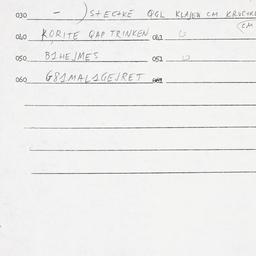 030 - ) STECKE QGL KLAJEN CM
(CM
040 KORITE QAP TRINKEN 041 U
050 B1HEJMES 051 U
060 G81MAL1GEJRET 061